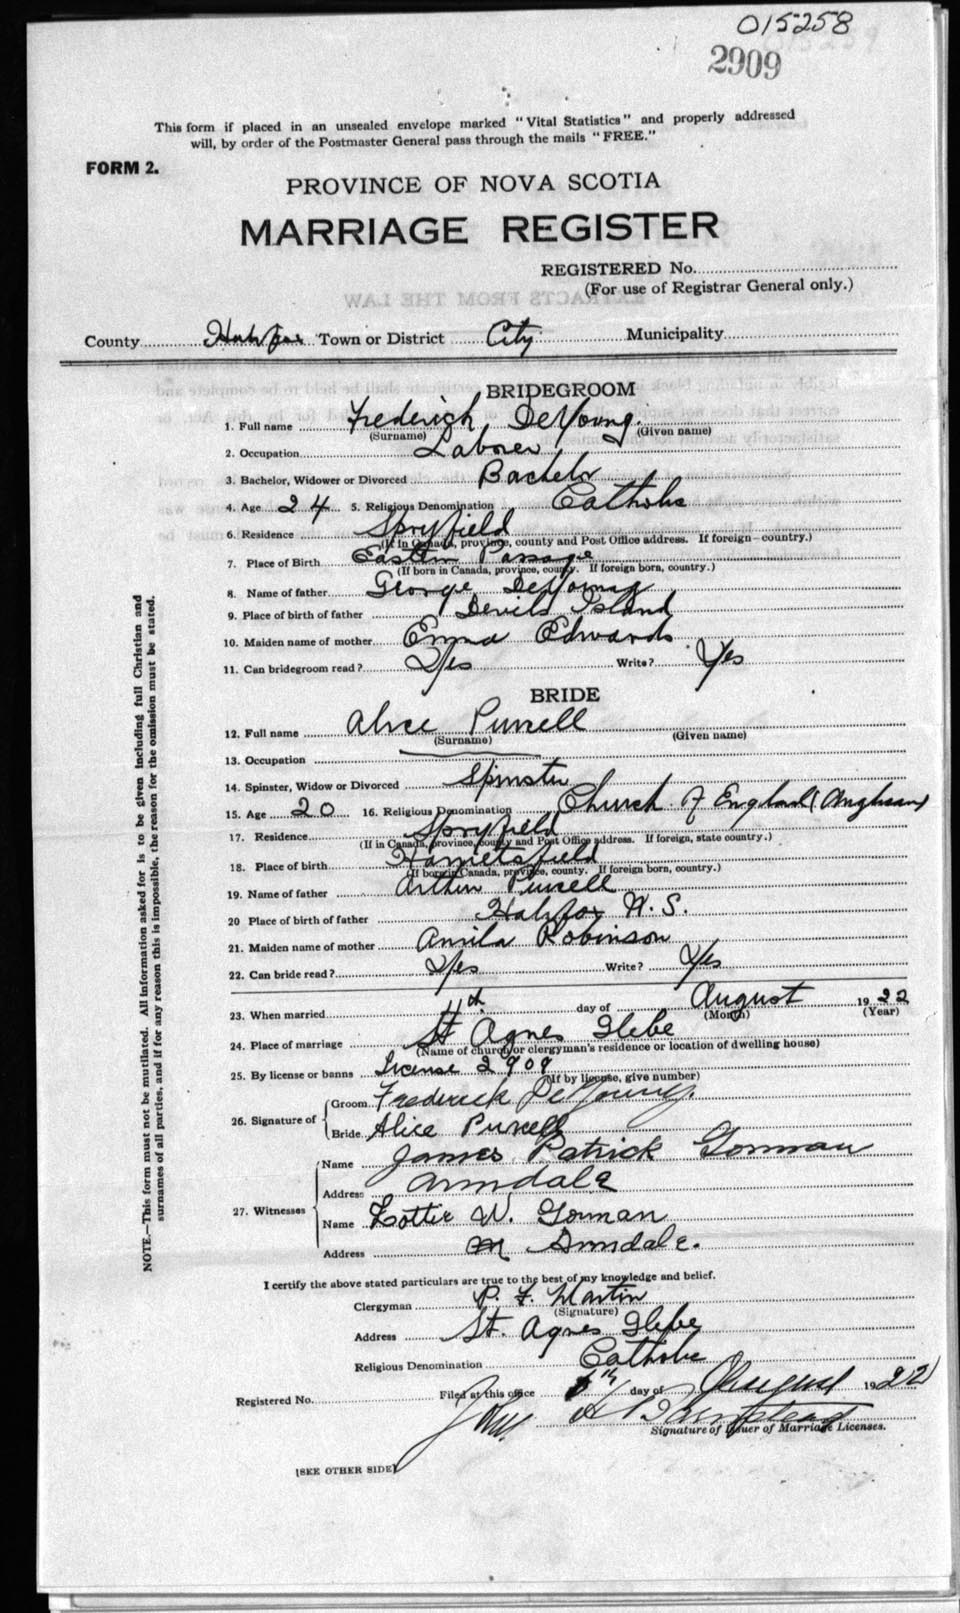 015258
2909
This form if placed in an unsealed envelope marked "Vital Statistics" and properly addressed
will, by order of the Postmaster General pass through the mails "FREE."
FORM 2.
PROVINCE OF NOVA SCOTIA
MARRIAGE REGISTER
REGISTERED No.
(For use of Registrar General only.)
County Halifax Town or District City Municipality
BRIDEGROOM
1. Full name Frederick DeYoung.
(Surname) (Given name)
2. Occupation Laborer
3. Bachelor, Widower or Divorced Bachelor
4. Age 24 5. Religious Denomination Catholic
6. Residence Spryfield
(If in Canada, province, county and Post Office address. If foreign country.)
7. Place of Birth Eastern Passage
(If born in Canada, province, county. If foreign born, country.)
8. Name of father George DeYoung
9. Place of birth of father Devils Island
10. Maiden name of mother Emma Edwards
11. Can bridegroom read? Yes Write? Yes
BRIDE
12. Full name Alice Purcell
(Surname) (Given name)
13. Occupation
14. Spinster, Widow or Divorced Spinster
15. Age 20 16. Religious Denomination Church of England (Anglican)
17. Residence Spryfield
(If in Canada, province, county and Post Office address. If foreign, state country.)
18. Place of birth Harrietsfield
(If born in Canada, province, county. If foreign born, country.)
19. Name of father Arthur Purcell
20 Place of birth of father Halifax N.S.
21. Maiden name of mother Robinson
22. Can bride read? Yes Write? Yes
23. When married 11th day of August 1922
(Month) (Year)
24. Place of marriage St Agnes Glebe
(Name of church or clergyman's residence or location of dwelling house)
25. By license or banns License 2909
(If by license, give number)
26. Signature of
Groom Frederick DeYoung.
Bride Alice Purcell
27. Witnesses
Name James Patrick Gorman
Address Armdale
Name Lottie W. Gorman
Address Armdale.
I certify the above stated particulars are true to the best of my knowledge and belief.
Clergyman P. F. Martin
(Signature)
Address St. Agnes Glebe
Religious Denomination Catholic
Registered No. Filed at this office day of August 1922
John
Signature of Issuer of Marriage Licenses.
[SEE OTHER SIDE]
NOTE.—This form must not be mutilated. All information asked for is to be given including full Christian and
surnames of all parties, and if for any reason this is impossible, the reason for the omission must be stated.